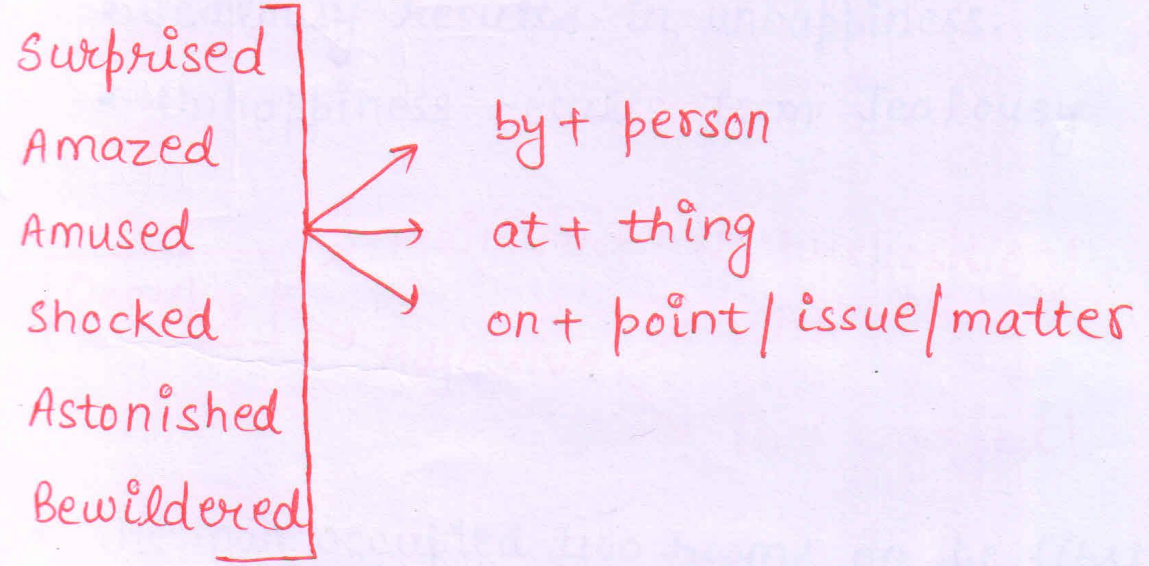 Surprised
Amazed
Amused
Shocked
Astonished
Bewildered
by + person
at + thing
on + point/issue/matter